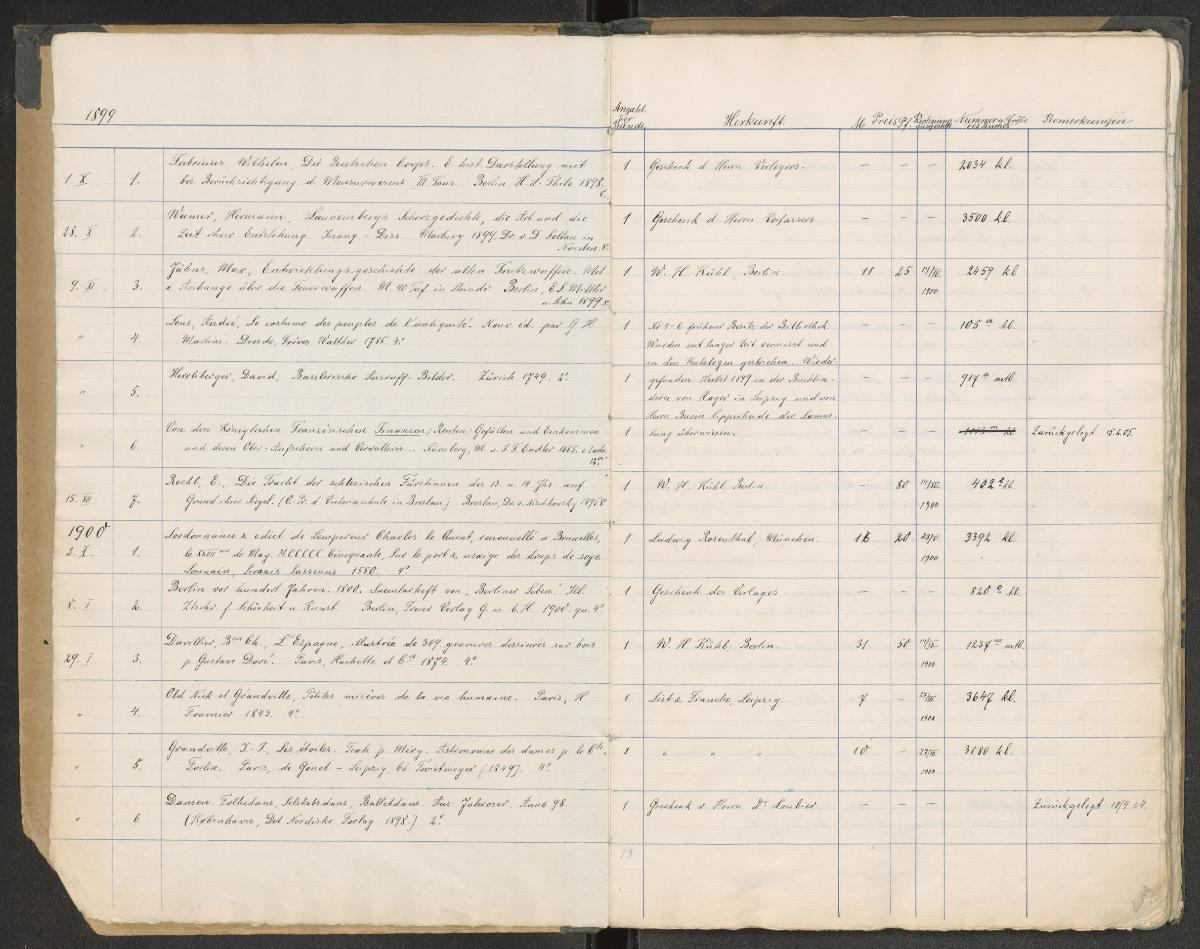 1899
Anzahl der Bände Herkunft M Preis Pf. Rechnung Nummer u. Größe des Buches Bemerkungen
1 X. 1. Fabricius, Wilhelm, Die Deutschen Corps. E. hist. Darstellung mit 1 Geschenk d. Herrn Verlegers. — — — 2034 kl.
bes. Berücksichtigung d. Mensurwesens. III Taus. Berlin, H. L. Thilo 1898. 8.
28. X 2. Hermann, Lauremberg's Scherzgedichte, die Art und die 1 Geschenk d. Herrn Verfassers. — — — 3500 kl.
Zeit ihrer Entstehung. Inaug-Diss. Marburg 1899. Dr. v. D. Soltau in
Norden. 8.
9. XI 3. Jähns, Max, Entwicklungsgeschichte der alten Trutzwaffen. Mit 1 W. H. Kühl, Berlin. 11 25 2459 kl
e. Anhange über die Feuerwaffen. M. 40 Taf. in Steindr. Berlin, E. S. Mittler 1900
u. Sohn 1899 8.
" 4. Lens, André, Le costume des peuples de l'antiquité. Nouv. éd. par G. H. 1 No 4-6 früherer Besitz der Bibliothek. — — — 105 a kl.
Martini. Dresde, Frères Walther 1785. 4.° Wurden seit langer Zeit vermisst und
in den Katalogen gestrichen. Wieder-
" 5. Herrliberger, David, Basslerische Ausruff-Bilder. Zürich 1749. 2.° 1 gefunden Herbst 1899 in der Buchbin- — — — 917 a mtl.
derei von Hager in Leipzig und von
Herrn Baron Lipperheide der Samm-
" 6. Von den Königlichen Französischen Finanzen, Renten, Gefällen und Einkommen 1 lung überwiesen. — — — Zurückgelegt 15.6.05.
und deren Ober-Aufsehern und Verwaltern... Nürnberg, M. u. J. F. Endter 1665.
12.°
15. XII 7. Roehl, E., Die Tracht der schlesischen Fürstinnen des 13. u. 14. Jhs. auf 1 W. H. Kühl, Berlin — 80 402 kl.
Grund ihrer Siegel. (O. Pr. d. Victoriaschule in Breslau.) Breslau, Dr. v. Nischkovsky 1895 8 1900
1900
2. I. 1. Lordonnance & edict de Lempereur Charles le Quint, renouuelle a Bruxelles, 1 Ludwig Rosenthal, München. 16 20 3392 kl.
le XXVII me de May. MCCCCC Cinequante, Sur le port & usaige des draps de soye. 1900
Louuain, Seruais Sassenus 1550. 4.°
8. I 2. Berlin vor hundert Jahren. 1800. Saecularheft von „Berliner Leben." Ill. 1 Geschenk des Verlages — — — 820 kl.
Ztschr. f. Schönheit u. Kunst. Berlin, Freier Verlag G. m. b. H. 1900. qu. 4.°
29. I 3. Davillier, B on Ch., L'Espagne, illustrée de 309 gravures dessinées sur bois 1 W. H Kühl, Berlin. 31 50 1237 m mtl.
p. Gustave Doré. Paris, Hachette et C ie 1874. 4.° 1900
" 4. Old Nick et Grandville, Petites misères de la vie humaine. Paris, H. 1 List & Francke, Leipzig. 7 — 3647 kl.
Fournier 1843. 4.° 1900
" 5. Grandville, J.-J., Les étoiles. Texte p. Méry. Astronomie des dames p. le C te 1 " " " 10 — 3180 kl.
Foelix. Paris, de Gonet – Leipzig, Ch. Twietmeyer [1849]. 4.° 1900
" 6 Dansen. Folkedans, Selskabsdans, Balletdans. Anno 98. 1 Geschenk v. Herrn Dr. — — — Zurückgelegt 10/4.04
(København, Det Nordiske Forlag 1898.) 2.°
13